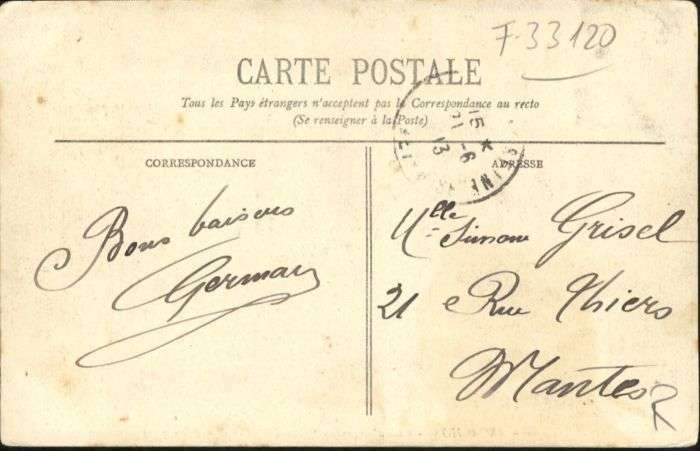 F-33120
CARTE POSTALE
Tous les Pays étrangers n'acceptent pas la Correspondance au recto
(Se renseigner à la Poste)
15 *
21 -6
13
CORRESPONDANCE
ADRESSE
Bons baisers
Germain
Mlle Simone Grisel
21 Rue Thiers
Mantes
R